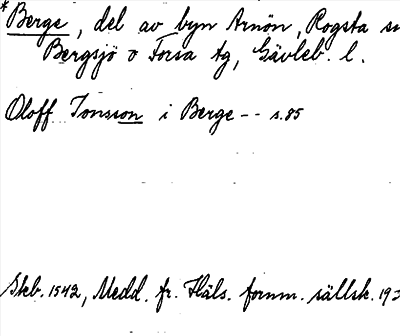 *Berge, del av byn Arnön, Rogsta sn
Bergsjö o Forsa tg, Gävleb. l.
Oloff Jonsson i Berge -- s.85
Skb. 1542, Medd. fr. Häls. fornm. sällsk. 193